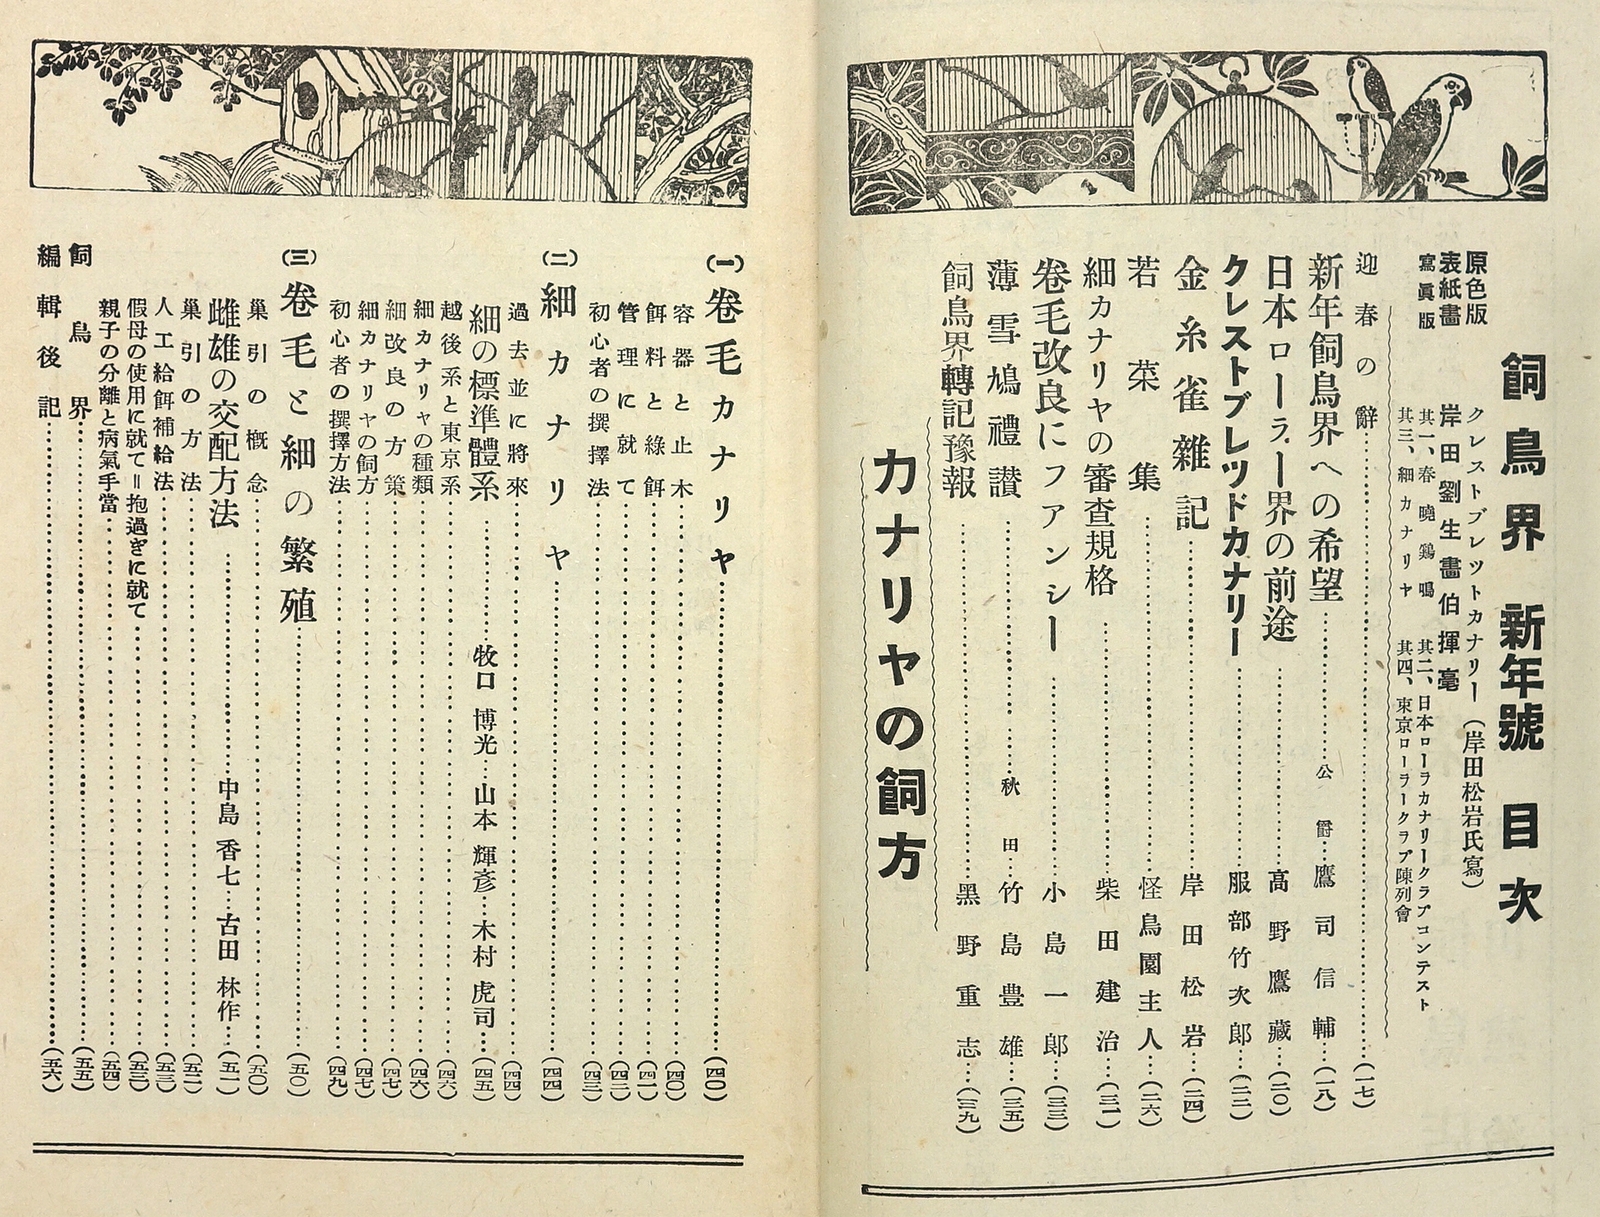 飼鳥界 新年號 目次
原色版 クレストブレツトカナリー (岸田松岩氏寫)
表紙畵 岸田劉生畵伯揮毫
寫眞版 其一、春曉鶏鳴 其二、日本ローラカナリークラブコンテスト
其三、細カナリヤ 其四、東京ローラークラブ陳列會
迎春の辭……(一七)
新年飼鳥界への希望……公爵…鷹司信輔…(一八)
日本ローラー界の前途……高野鷹藏…(二〇)
クレストブレッドカナリー……服部竹次郎…(二二)
金糸雀雜記……岸田松岩…(二四)
若菜集……怪鳥園主人…(二六)
細カナリヤの審査規格……柴田建治…(三一)
卷毛改良にファンシー……小島一郎…(三三)
薄雪鳩禮讃……秋田…竹島豊雄…(三五)
飼鳥界轉記豫報……黑野重志…(三九)
カナリヤの飼方
(一)卷毛カナリヤ……(四〇)
容器と止木……(四〇)
餌料と綠餌……(四一)
管理に就て……(四二)
初心者の撰擇法……(四三)
(二)細カナリヤ……(四四)
過去並に將來……(四四)
細の標準體系……牧口博光…山本輝彦…木村虎司…(四五)
越後系と東京系……(四六)
細カナリヤの種類……(四六)
細改良の方策……(四七)
細カナリヤの飼方……(四七)
初心者の撰擇方法……(四九)
(三)卷毛と細の繁殖……(五〇)
巢引の概念……(五〇)
雌雄の交配方法……中島香七…古田林作…(五一)
巢引の方法……(五二)
人工給餌補給法……(五三)
假母の使用に就て=抱過ぎに就て……(五三)
親子の分離と病氣手當……(五四)
飼鳥界……(五五)
編輯後記……(五六)